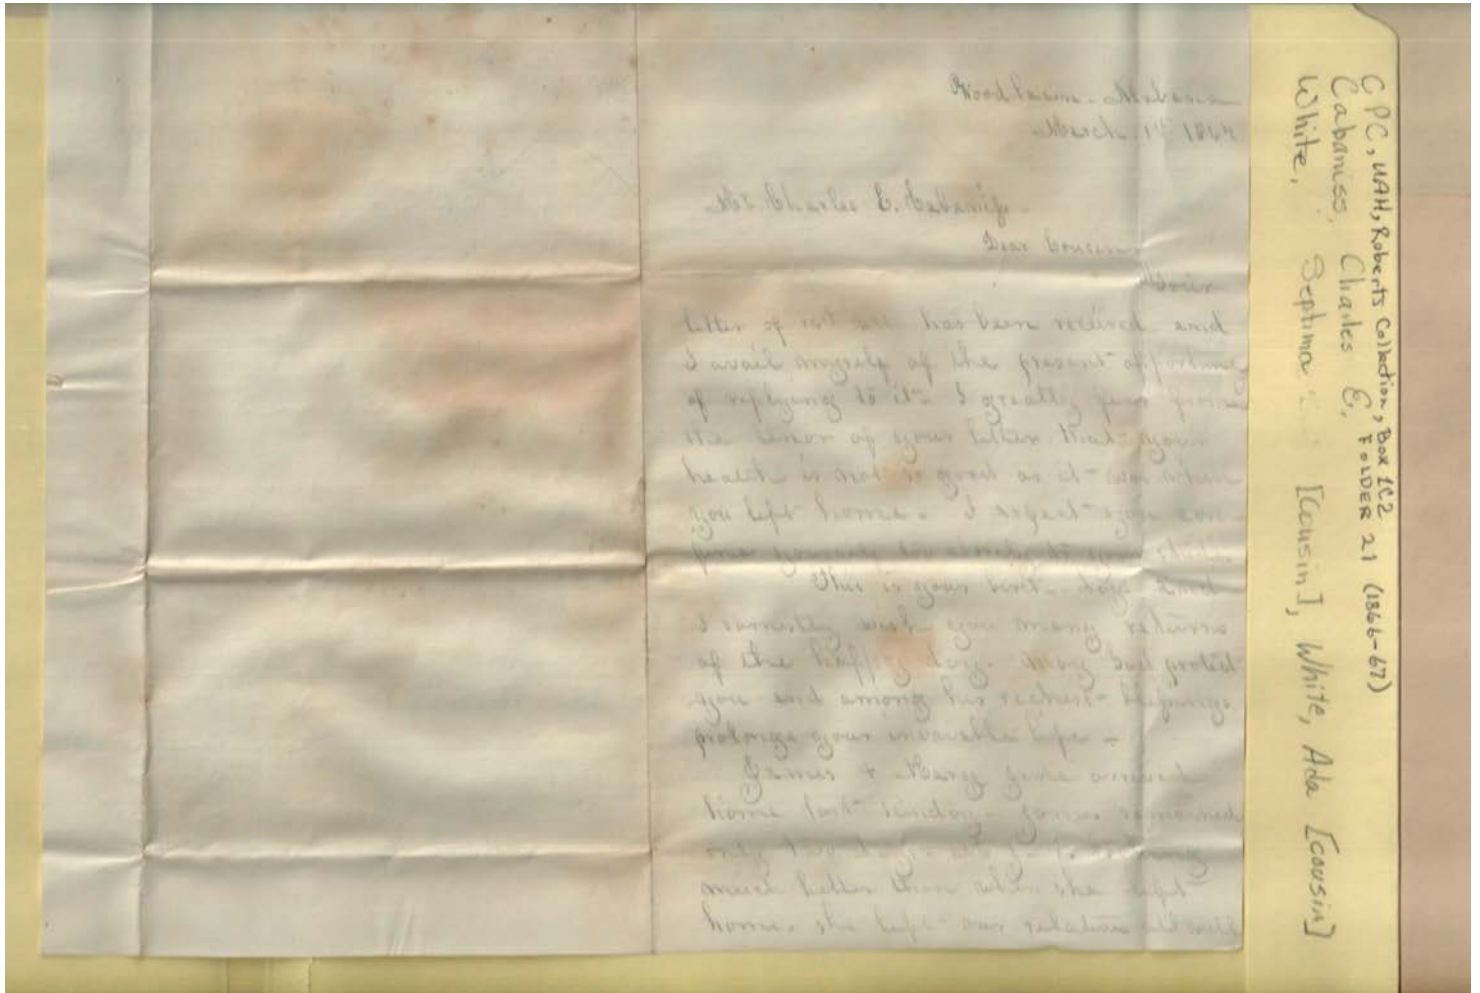 March 1st 1867
Mr. Charles E. Cabaniss
Dear Cousin
Your
letter of has been received and
I avail myself of the present opportunity
of replying to it - I greatly fear from
the tenor of your letter that your
health is not so good as it was when
you left home - I expect you con-
fine yourself too closely to your
This is your birth-day and
I earnestly wish you many returns
of the happy day. May God protect
you and among his richest blessings
prolong your life -
James & Mary Jane arrived
home last Sunday - James remained
only two days -
much better than when she left
home. She left our relations all well
GPC, UAH, Roberts Collection, Box 1C2
FOLDER 21 (1866-67)
Cabaniss, Charles E.
White, Septima [cousin], White, Ada [cousin]